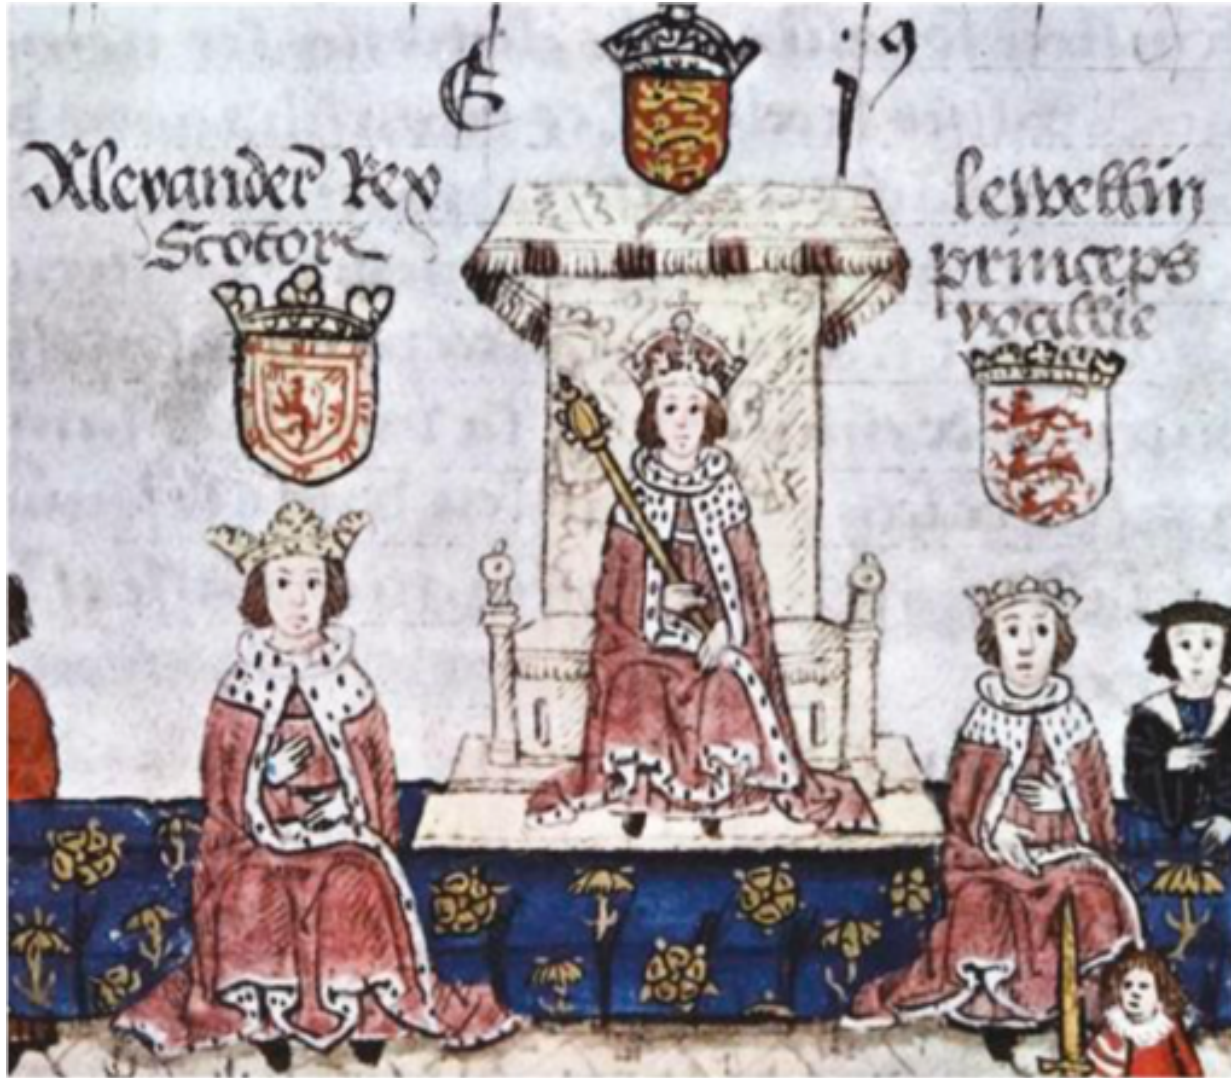 E j9
Alexander Rex
Scotor
lewellin
princeps
wallie